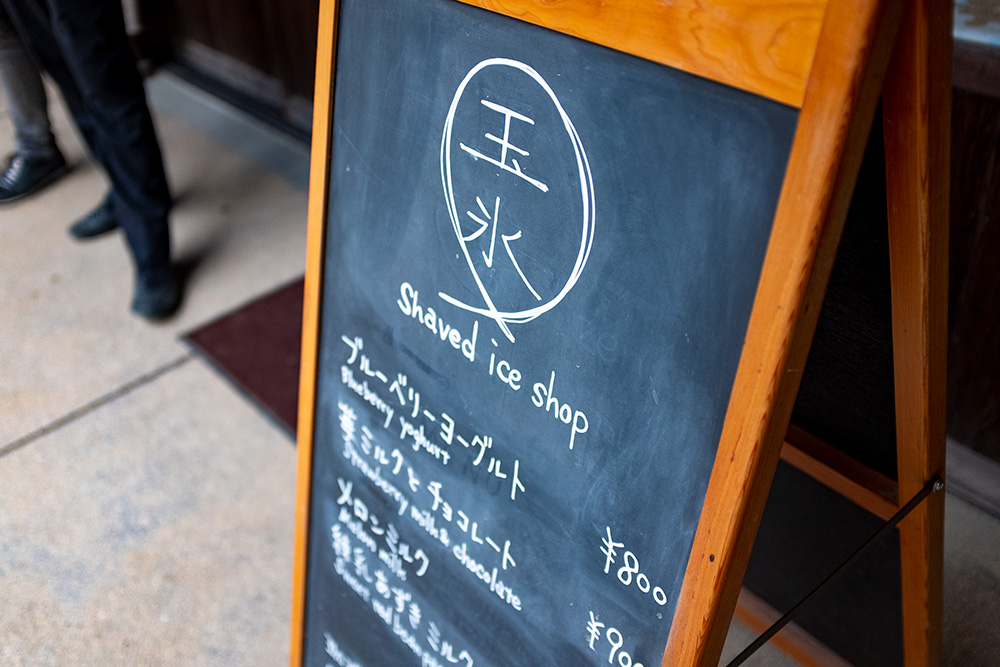 玉
氷
Shaved ice shop
ブルーベリーヨーグルト ¥800
Blueberry yoghurt
苺ミルクとチョコレート ¥900
Strawberry milk & chocolate
メロンミルク
Melon milk
練乳あずきミルク
Sweet red bean